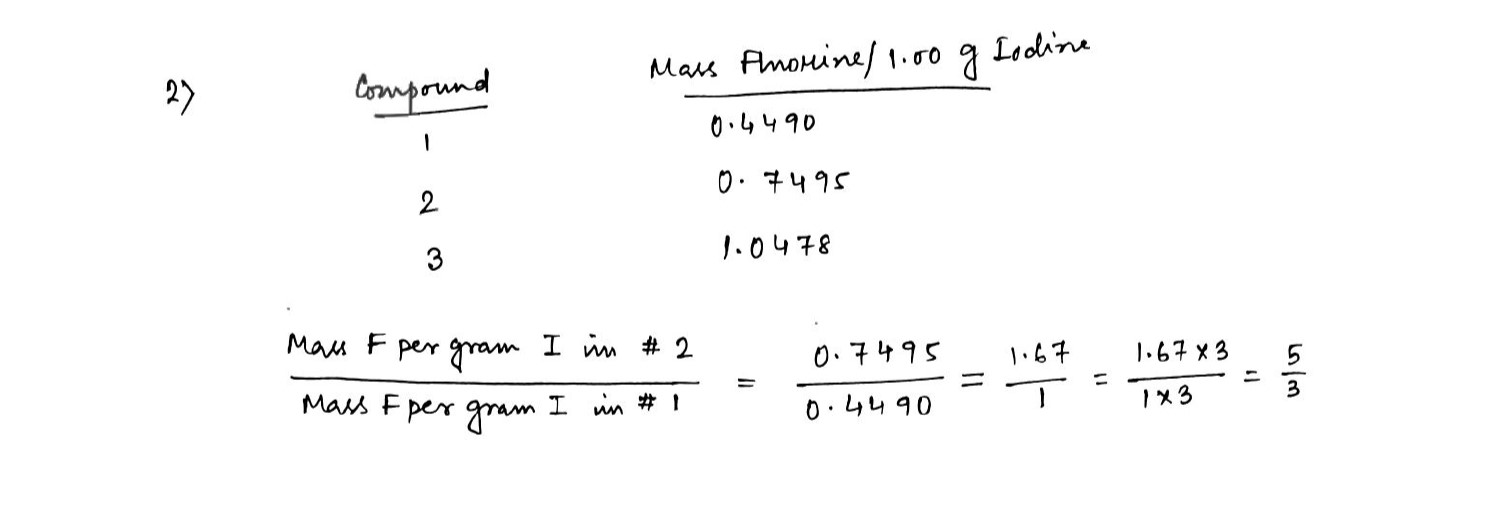 2) Compound Mass Fluorine/1.00 g Iodine
1 0.4490
2 0.7495
3 1.0478
Mass F per gram I in # 2 / Mass F per gram I in # 1 = 0.7495 / 0.4490 = 1.67 / 1 = 1.67 x 3 / 1 x 3 = 5 / 3